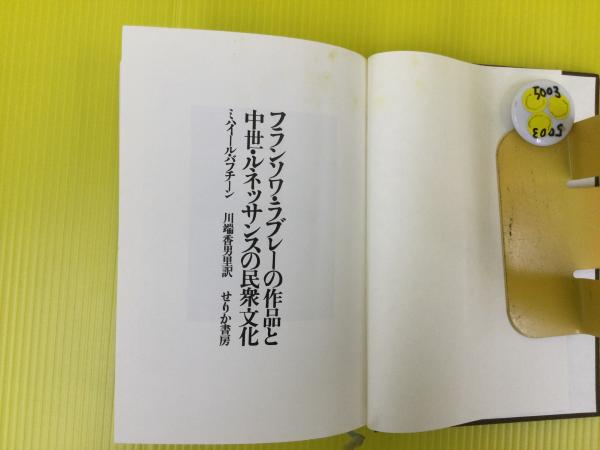 フランソワ・ラブレーの作品と
中世・ルネッサンスの民衆文化
ミハイール・バフチーン 川端香男里訳 せりか書房
5003
5003